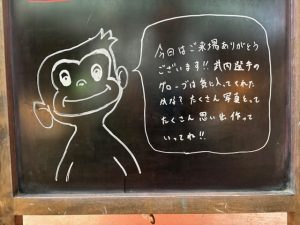 今日はご来場ありがとう
ございます!! 武内選手の
グローブは気に入ってくれた
かな? たくさん写真とって
たくさん思い出作って
いってね!!